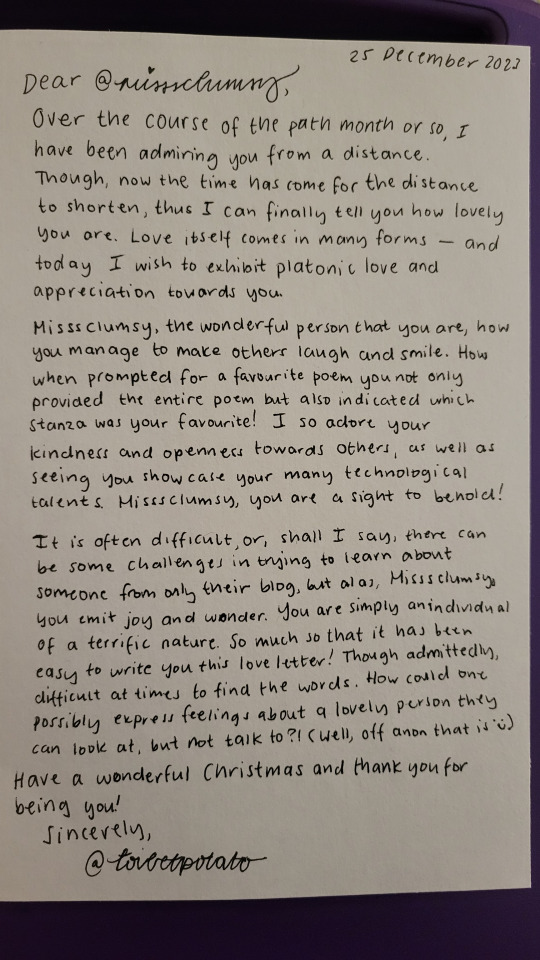 25 December 2023
Dear @missclumsy,
Over the course of the path month or so, I
have been admiring you from a distance.
Though, now the time has come for the distance
to shorten, thus I can finally tell you how lovely
you are. Love itself comes in many forms — and
today I wish to exhibit platonic love and
appreciation towards you.
Missсlumsy, the wonderful person that you are, how
you manage to make others laugh and smile. How
when prompted for a favourite poem you not only
provided the entire poem but also indicated which
stanza was your favourite! I so adore your
kindness and openness towards others, as well as
seeing you showcase your many technological
talents. Misssclumsy, you are a sight to behold!
It is often difficult, or, shall I say, there can
be some challenges in trying to learn about
someone from only their blog, but alas, Misssclumsy,
you emit joy and wonder. You are simply an individual
of a terrific nature. So much so that it has been
easy to write you this love letter! Though admittedly,
difficult at times to find the words. How could one
possibly express feelings about a lovely person they
can look at, but not talk to?! (Well, off anon that is ü)
Have a wonderful Christmas and thank you for
being you!
Sincerely,